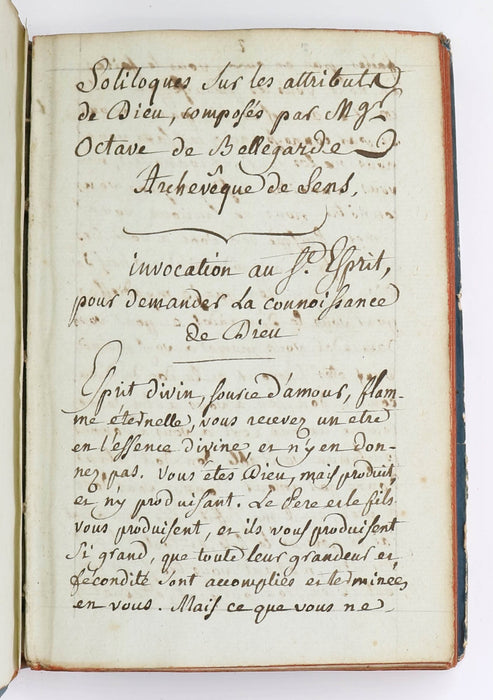 Soliloques sur les attributs
de Dieu, composés par Mgr
Octave de Bellegarde
Archevêque de Sens.
invocation au St. Esprit,
pour demander La connoissance
de Dieu
Esprit divin, source d'amour, flam-
me éternelle, vous recevez un etre
en l'essence divine et n'y en don-
nez pas. Vous êtes Dieu, mais produit,
et ny produisant. Le Pere et le fils
vous produisent, et ils vous produisent
si grand, que toute leur grandeur et
fécondité sont accomplies et terminées
en vous. Mais ce que vous ne